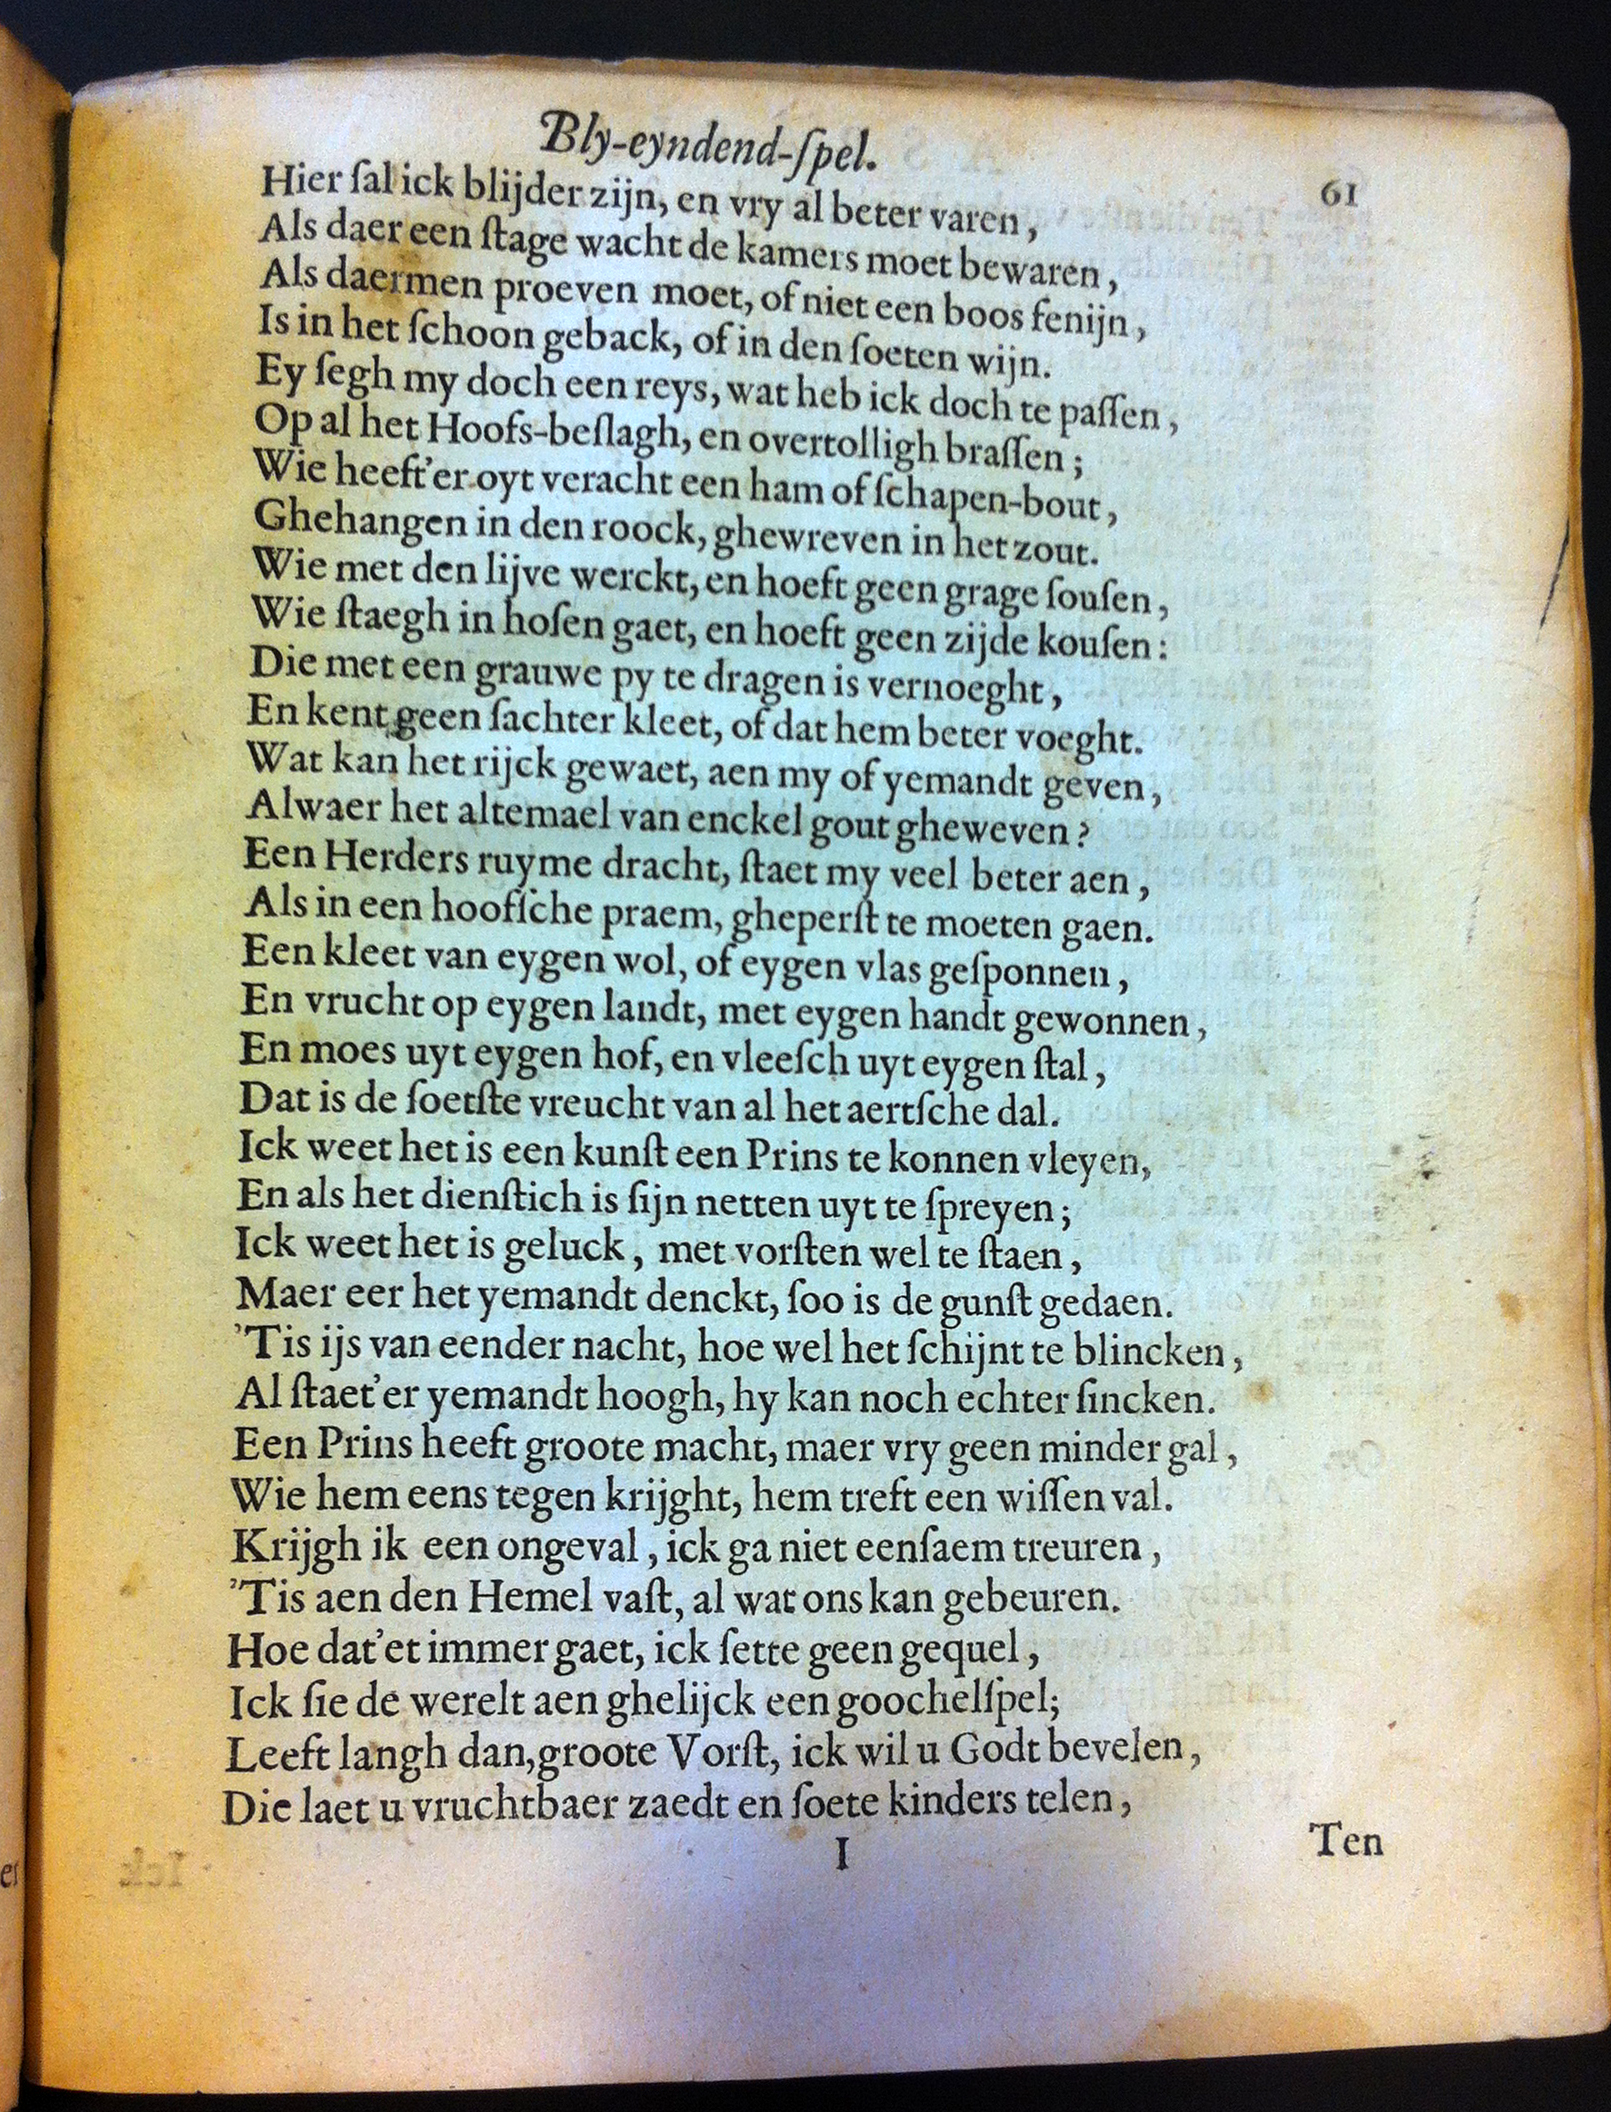 Bly-eyndend-ſpel.
61
Hier ſal ick blijder zijn, en vry al beter varen,
Als daer een ſtage wacht de kamers moet bewaren,
Als daermen proeven moet, of niet een boos fenijn,
Is in het ſchoon geback, of in den ſoeten wijn.
Ey ſegh my doch een reys, wat heb ick doch te paſſen,
Op al het Hoofs-beſlagh, en overtolligh braſſen;
Wie heeft'er oyt veracht een ham of ſchapen-bout,
Ghehangen in den roock, ghewreven in het zout.
Wie met den lijve werckt, en hoeft geen grage ſouſen,
Wie ſtaegh in hoſen gaet, en hoeft geen zijde kouſen:
Die met een grauwe py te dragen is vernoeght,
En kent geen ſachter kleet, of dat hem beter voeght.
Wat kan het rijck gewaet, aen my of yemandt geven,
Alwaer het altemael van enckel gout gheweven?
Een Herders ruyme dracht, ſtaet my veel beter aen,
Als in een hoofſche praem, gheperſt te moeten gaen.
Een kleet van eygen wol, of eygen vlas geſponnen,
En vrucht op eygen landt, met eygen handt gewonnen,
En moes uyt eygen hof, en vleeſch uyt eygen ſtal,
Dat is de ſoetſte vreucht van al het aertſche dal.
Ick weet het is een kunſt een Prins te konnen vleyen,
En als het dienſtich is ſijn netten uyt te ſpreyen;
Ick weet het is geluck, met vorſten wel te ſtaen,
Maer eer het yemandt denckt, ſoo is de gunſt gedaen.
'Tis ijs van eender nacht, hoe wel het ſchijnt te blincken,
Al ſtaet'er yemandt hoogh, hy kan noch echter ſincken.
Een Prins heeft groote macht, maer vry geen minder gal,
Wie hem eens tegen krijght, hem treft een wiſſen val.
Krijgh ik een ongeval, ick ga niet eenſaem treuren,
'Tis aen den Hemel vaſt, al wat ons kan gebeuren.
Hoe dat'et immer gaet, ick ſette geen gequel,
Ick ſie de werelt aen ghelijck een goochelſpel;
Leeft langh dan, groote Vorſt, ick wil u Godt bevelen,
Die laet u vruchtbaer zaedt en ſoete kinders telen,
I
Ten